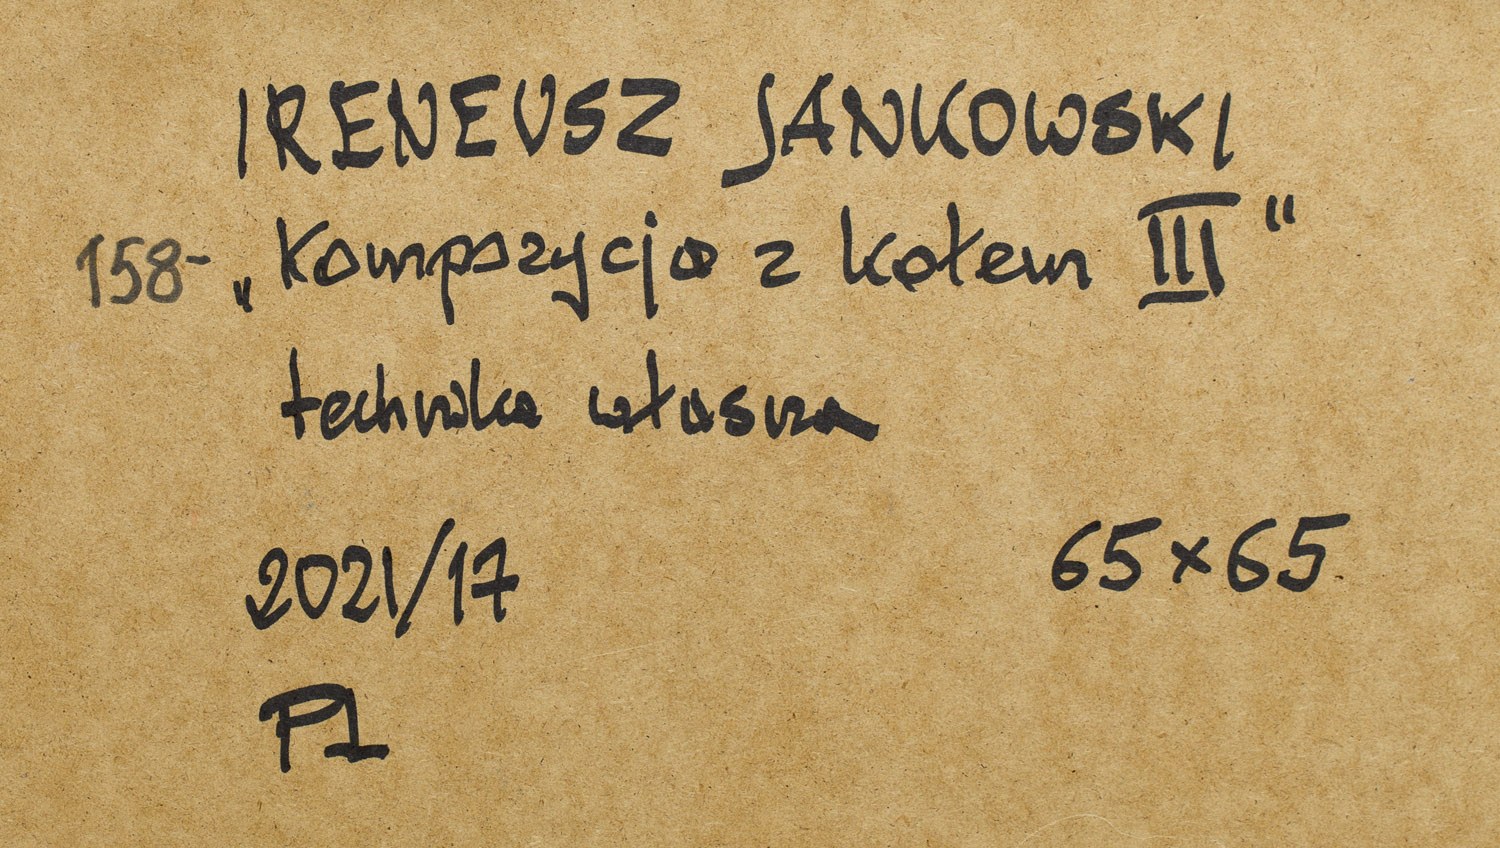 IRENEUSZ JANKOWSKI
158- „Kompozycja z kołem III“
technika własna
2021/17 65×65
P1